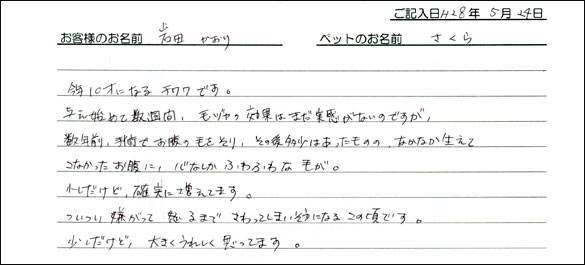 ご記入日H28年 5月24日
お客様のお名前 岩田 かおり ペットのお名前 さくら
今年10才になるチワワです。
与え始めて数週間、毛ヅヤの効果はまだ実感がないのですが、
数年前、手術でお腹の毛をそり、その後多少はあったものの、なかなか生えて
こなかったお腹に、心なしかふわふわな毛が。
少しだけど、確実に増えてます。
ついつい嫌がって怒るまでさわってしまいそうになるこの頃です。
少しだけど、大きくうれしく思ってます。